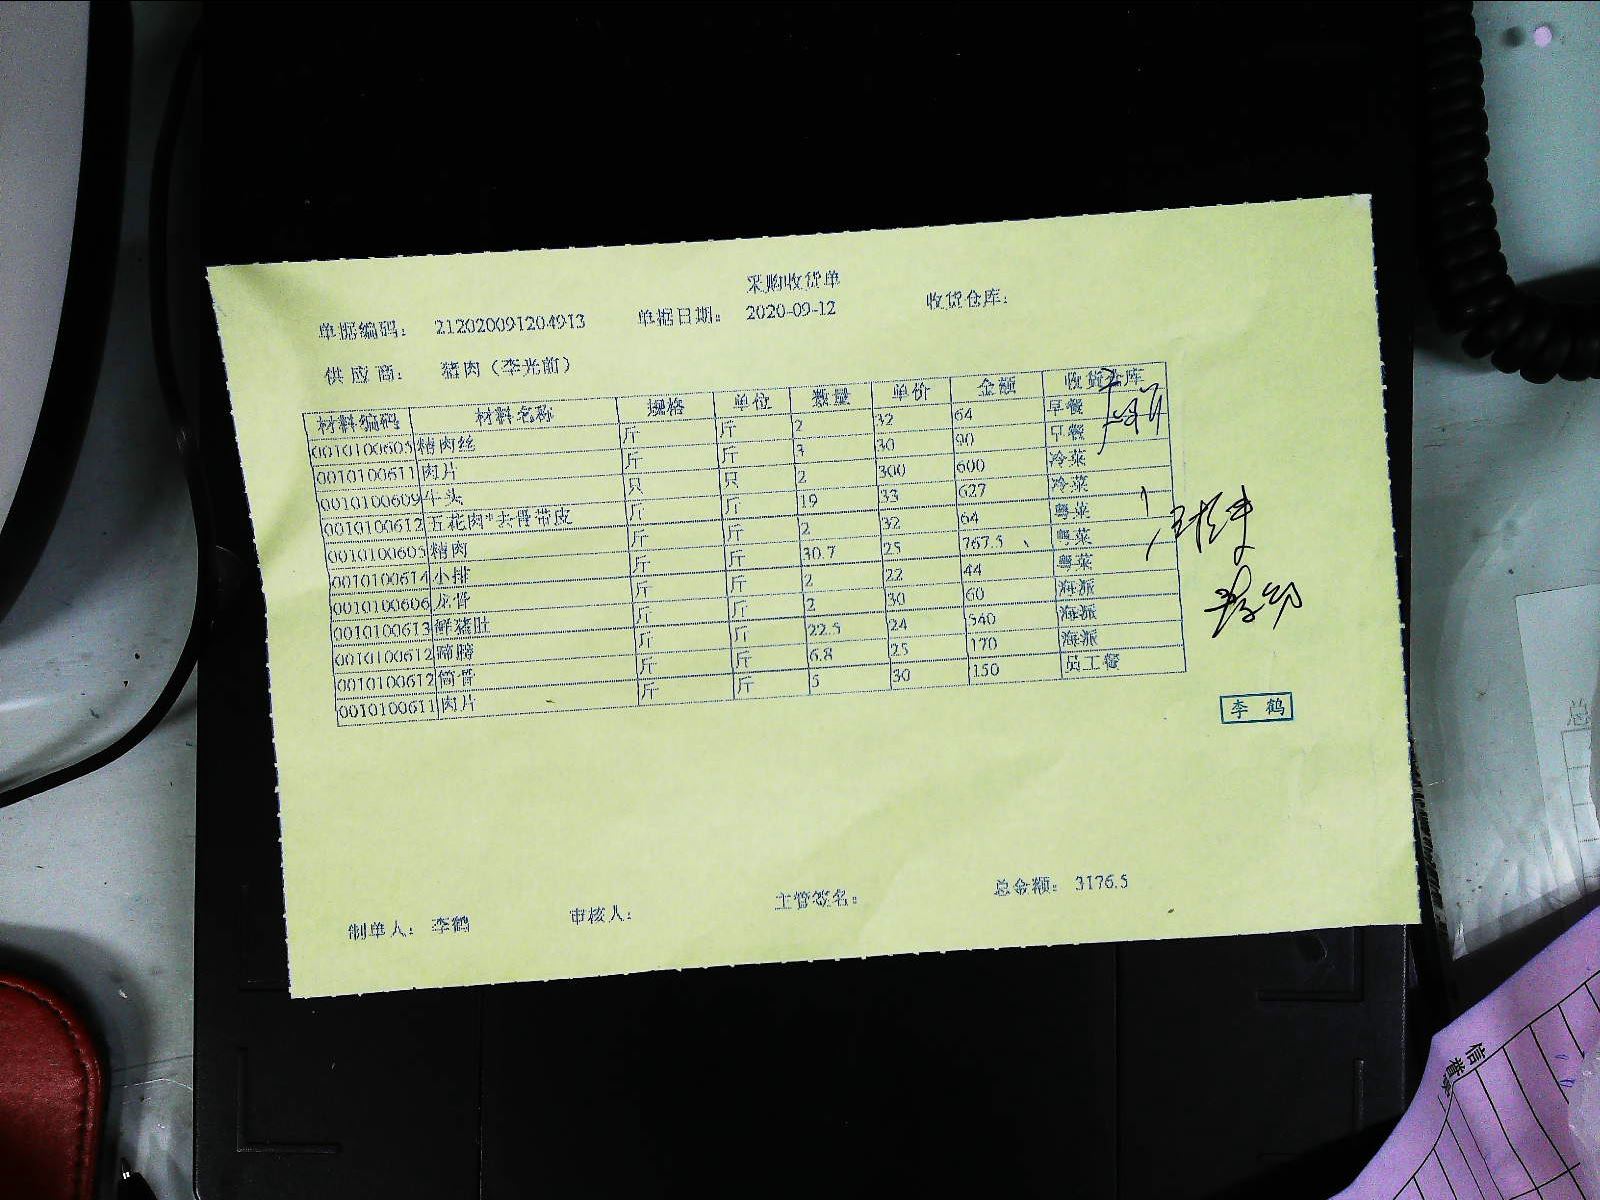 采购收货单
单据编码： 212020091204913 单据日期： 2020-09-12 收货仓库：
供应商： 猪肉（李光前）
材料编码 材料名称 规格 单位 数量 单价 金额 收货仓库
0010100605 精肉丝 斤 斤 2 32 64 早餐
0010100611 肉片 斤 斤 3 30 90 早餐
0010100609 牛头 只 只 2 300 600 冷菜
0010100612 五花肉*去骨带皮 斤 斤 19 33 627 冷菜
0010100605 精肉 斤 斤 2 32 64 粤菜
0010100614 小排 斤 斤 30.7 25 767.5 粤菜
0010100606 龙骨 斤 斤 2 22 44 粤菜
0010100613 鲜猪肚 斤 斤 2 30 60 海派
0010100612 蹄膀 斤 斤 22.5 24 540 海派
0010100612 筒骨 斤 斤 6.8 25 170 海派
0010100611 肉片 斤 斤 5 30 150 员工餐
李 鹤
制单人： 李鹤 审核人： 主管签名： 总金额： 3176.5
信誉